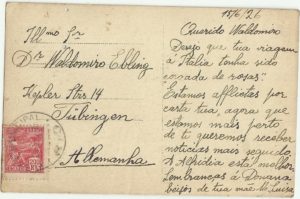 15/6/26
Illmo Sr
Dr Waldomiro Ebling
Kepler Str 14
Tübingen
Allemanha
Querido Waldomiro
Desejo que tua viagem
á Italia tenha sido
coroada de rosas.
Estamos afflictos por
carta tua, agora que
estamos mais perto
de ti queremos receber
noticias mais seguido
A Alhidia está melhor
Lembranças á
Beijos de tua mãe M. Luiza